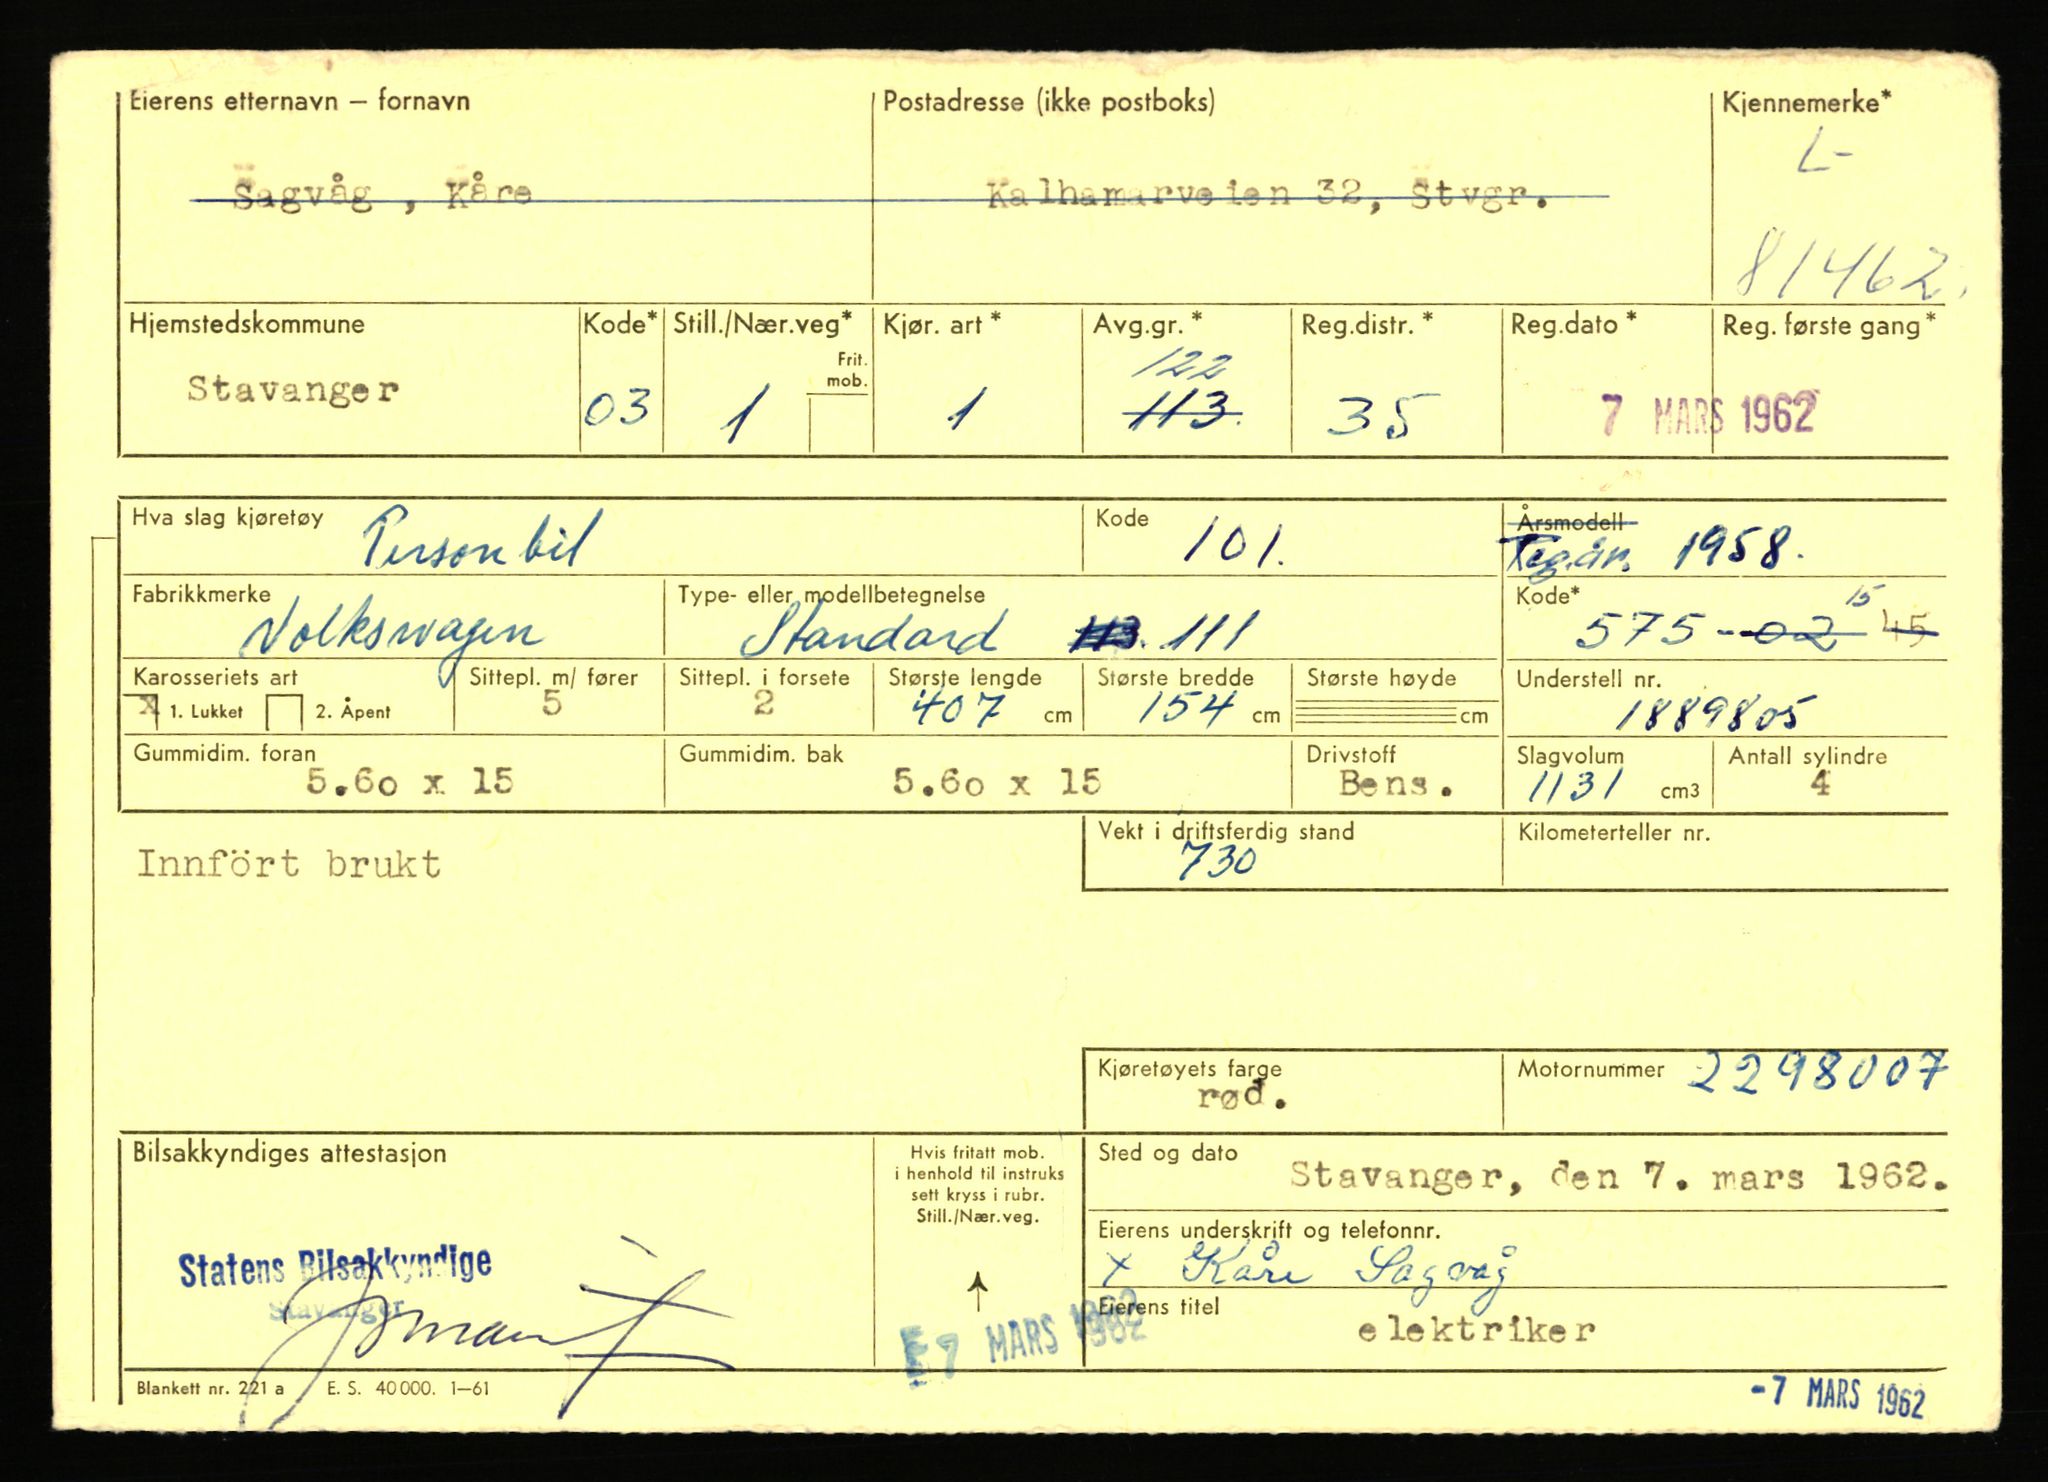 Eierens etternavn – fornavn
Postadresse (ikke postboks)
Kjennemerke*
L-
Sagvåg , Kåre
Kalhamarveien 32, Stvgr.
81462.
Hjemstedskommune
Kode*
Still./Nær.veg*
Kjør. art *
Avg.gr. *
Reg.distr. *
Reg.dato *
Reg. første gang *
Frit. mob.
122
Stavanger
03
1
1
113.
35
7 MARS 1962
Hva slag kjøretøy
Personbil
Kode
101.
Årsmodell
Reg.år. 1958.
Fabrikkmerke
Volkswagen
Type- eller modellbetegnelse
Standard 113. 111
Kode*
15
575 - 02 45
Karosseriets art
x 1. Lukket 2. Åpent
Sittepl. m/ fører
5
Sittepl. i forsete
2
Største lengde
407 cm
Største bredde
154 cm
Største høyde
cm
Understell nr.
1889805
Gummidim. foran
5.60 x 15
Gummidim. bak
5.60 x 15
Drivstoff
Bens.
Slagvolum
1131 cm3
Antall sylindre
4
Innfört brukt
Vekt i driftsferdig stand
730
Kilometerteller nr.
Kjøretøyets farge
rød.
Motornummer 2298007
Bilsakkyndiges attestasjon
Hvis fritatt mob.
i henhold til instruks
sett kryss i rubr.
Still./Nær.veg.
Sted og dato
Stavanger, den 7. mars 1962.
Eierens underskrift og telefonnr.
x Kåre Sagvåg
Statens Bilsakkyndige
Stavanger
Eierens titel
elektriker
7 MARS 1962
Blankett nr. 221 a E. S. 40 000. 1–61
-7 MARS 1962